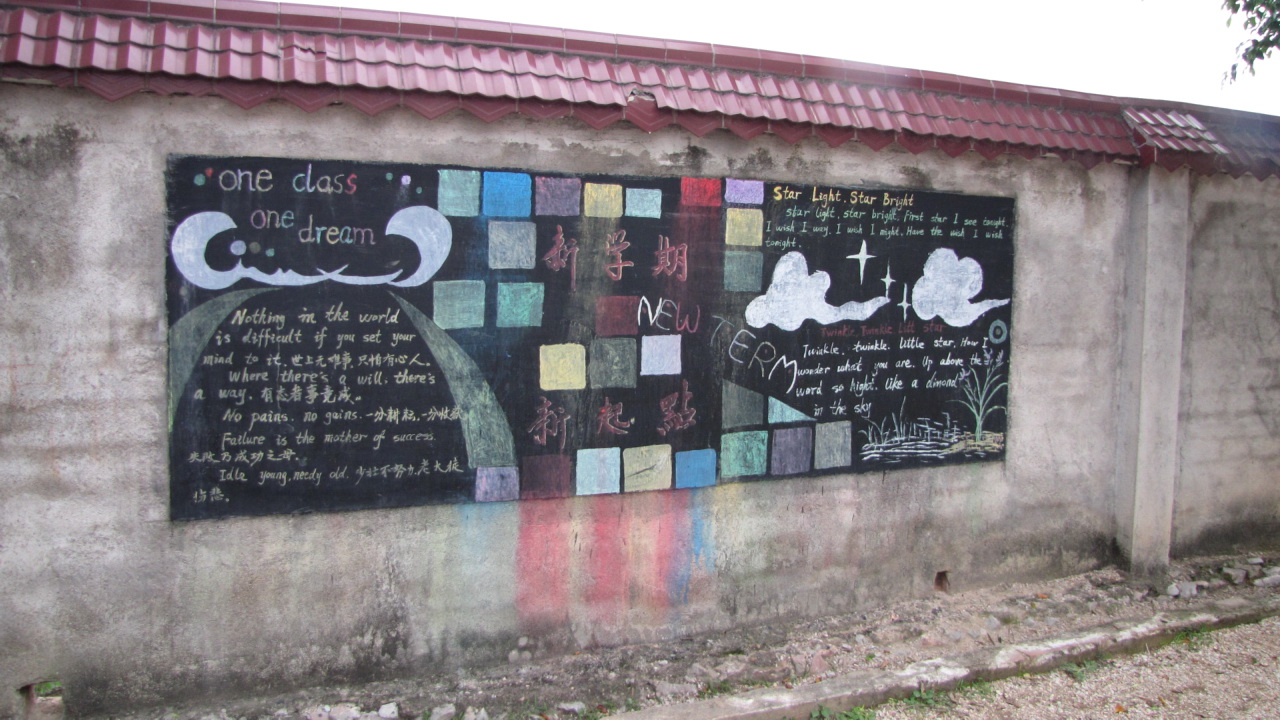 one class
one dream
Nothing in the world
is difficult if you set your
mind to it. 世上无难事,只怕有心人。
Where there's a will. there's
a way. 有志者事竟成。
No pains. no gains. 一分耕耘,一分收获
Failure is the mother of success.
失败乃成功之母.
Idle young, needy old. 少壮不努力,老大徒
伤悲。
新学期
NEW
TERM
新起點
Star Light. Star Bright
star light, star bright, first star I see tonight.
I wish I way. I wish I might. Have the wish I wish
tonight.
Twinkle. Twinkle Litt star
Twinkle. twinkle. little star. How I
wonder what you are. Up above the
word so hight. like a dimond
in the sky